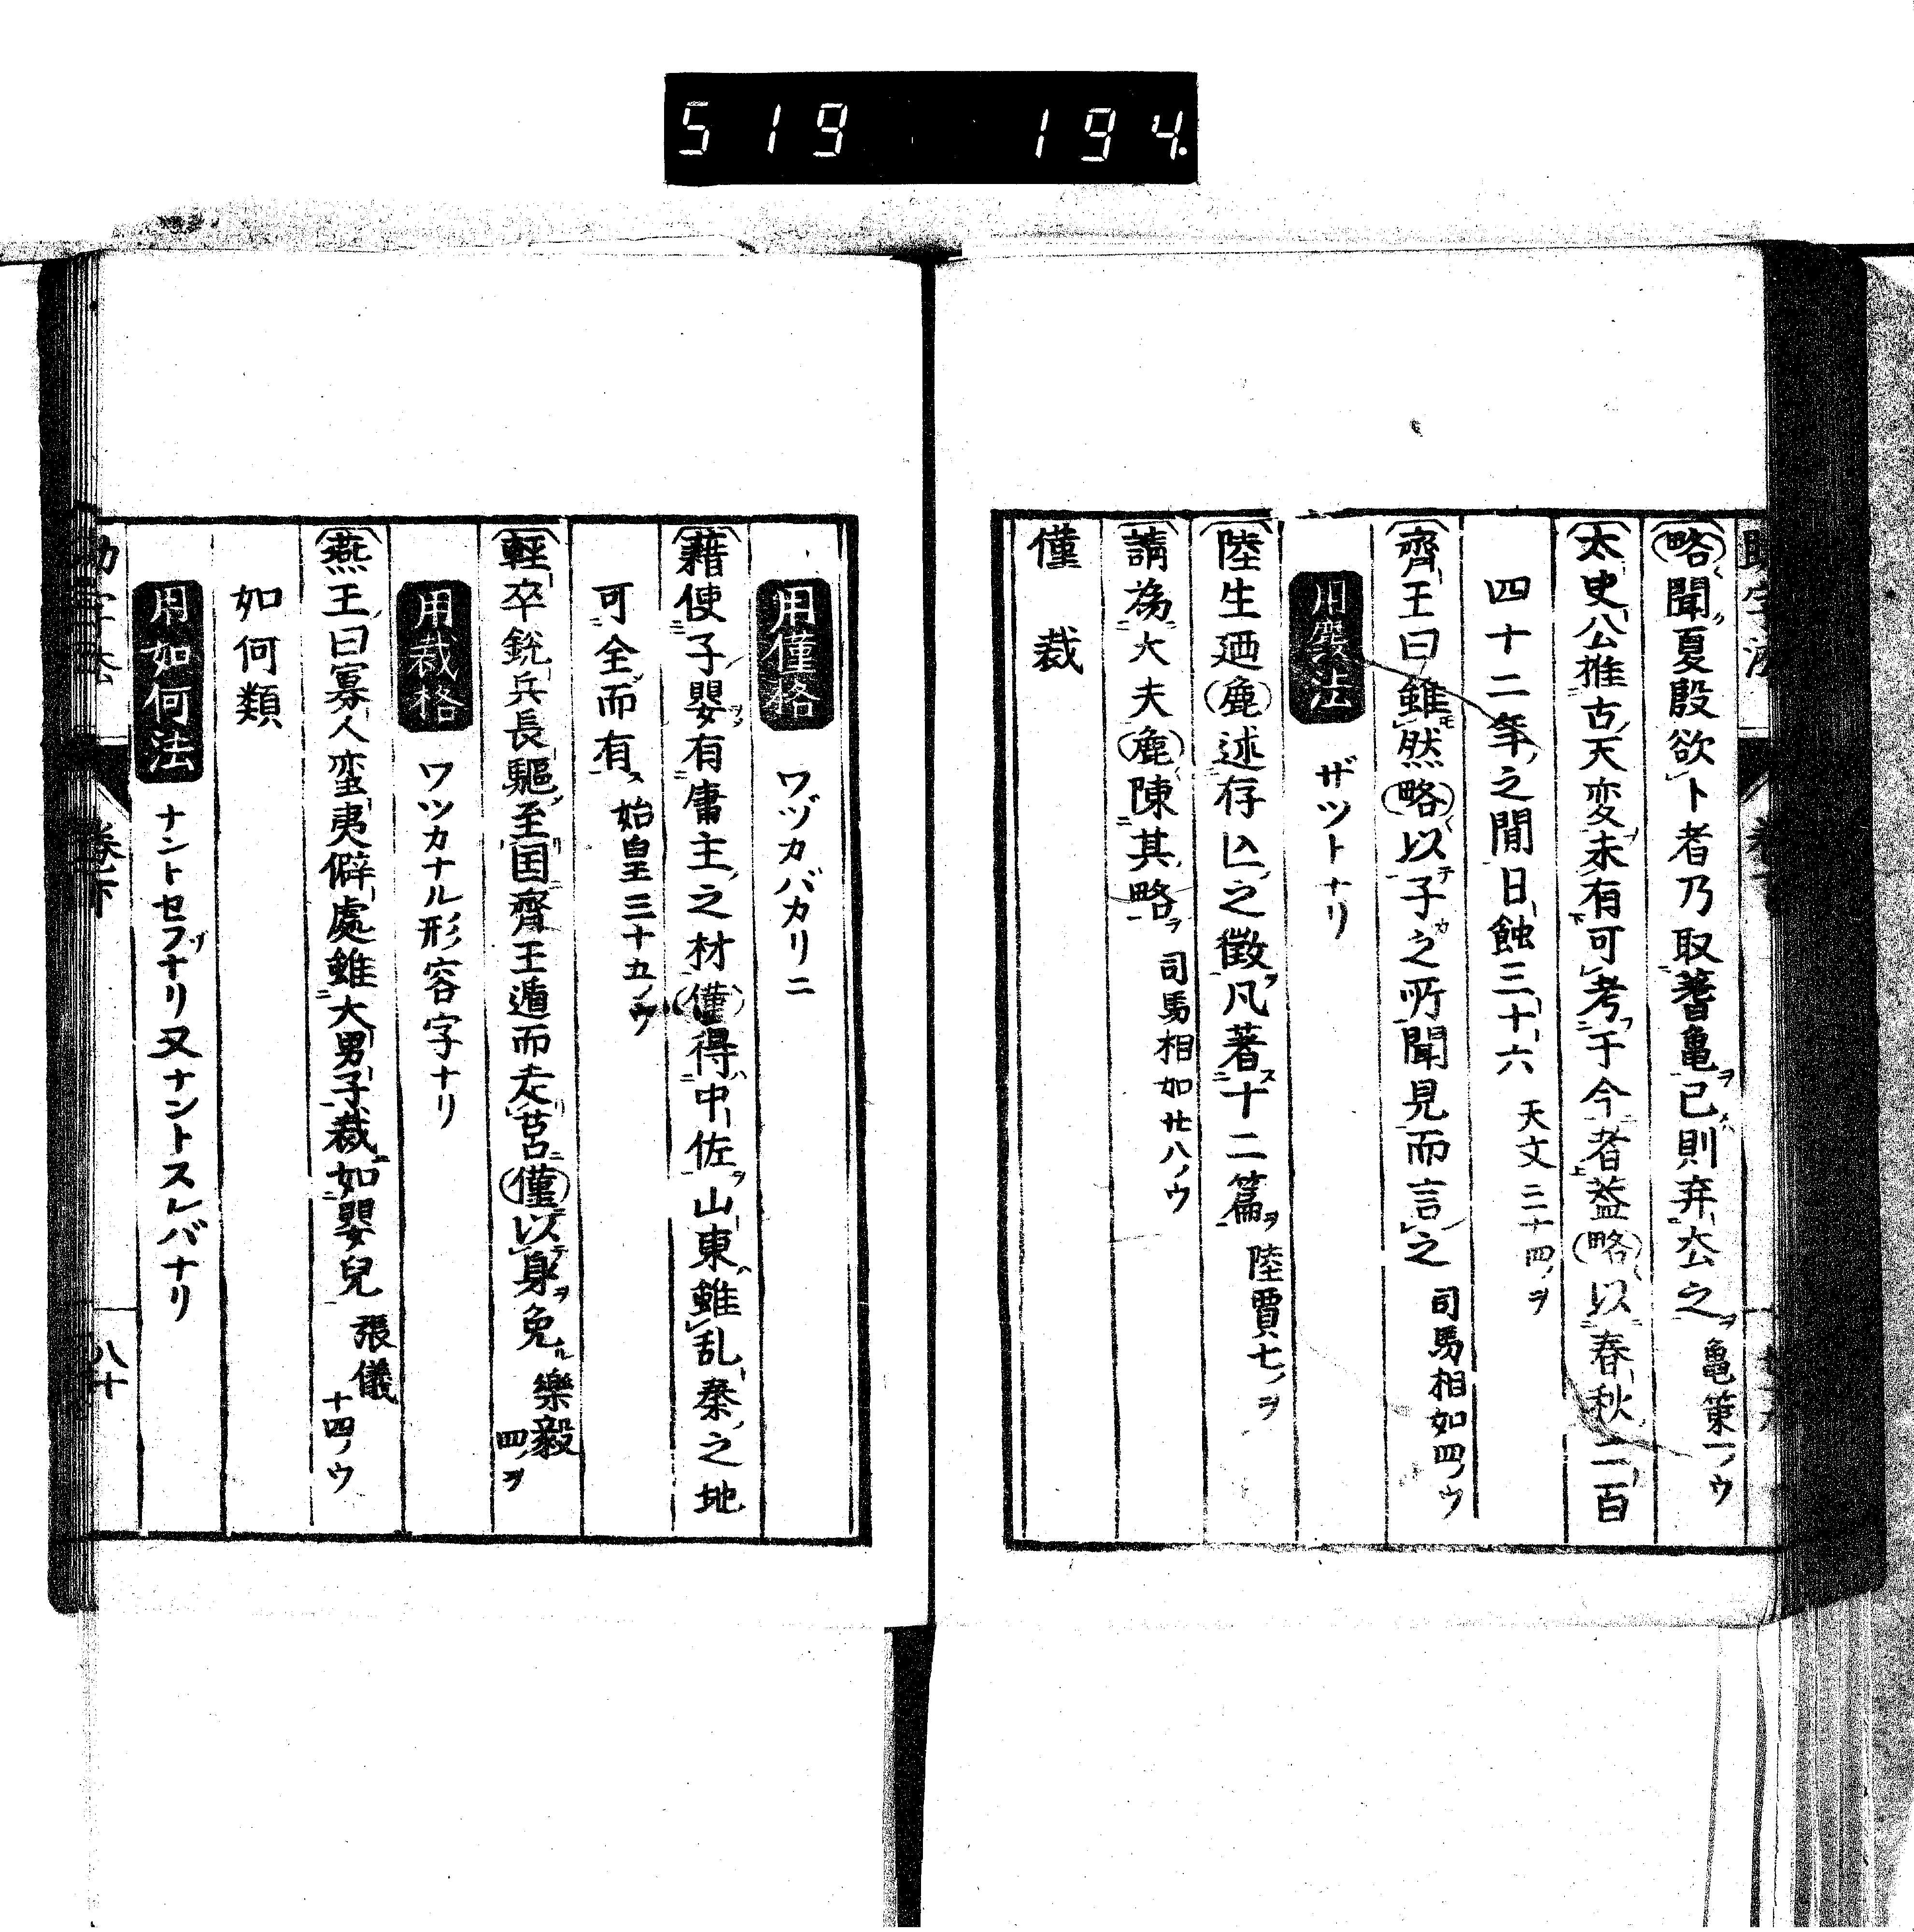 519 194
略聞夏殷欲卜者乃取蓍亀已則弃厺之 亀策一ノウ
太史公推古天変未有可考于今者益略以春秋二百
四十二年之間日蝕三十六 天文三十四ノヲ
齊王曰雖然略以子之所聞見而言之 司馬相如四ノウ
ザツトナリ
陸生廼麁述存亾之徴凡著十二篇 陸賈七ノヲ
請為大夫麁陳其略 司馬相如廿八ノウ
僅 裁
用僅格 ワヅカバカリニ
藉使子嬰有庸主之材僅得中佐山東雖乱秦之地
可全而有 始皇三十九ノウ
輕卒銳兵長驅至国齊王遁而走莒僅以身免 樂毅四ノヲ
用裁格 ワツカナル形容字ナリ
燕王曰寡人蛮夷僻處雖大男子裁如嬰兒 張儀十四ノウ
如何類
用如何法 ナントセフゾナリ又ナントスレバナリ
八十